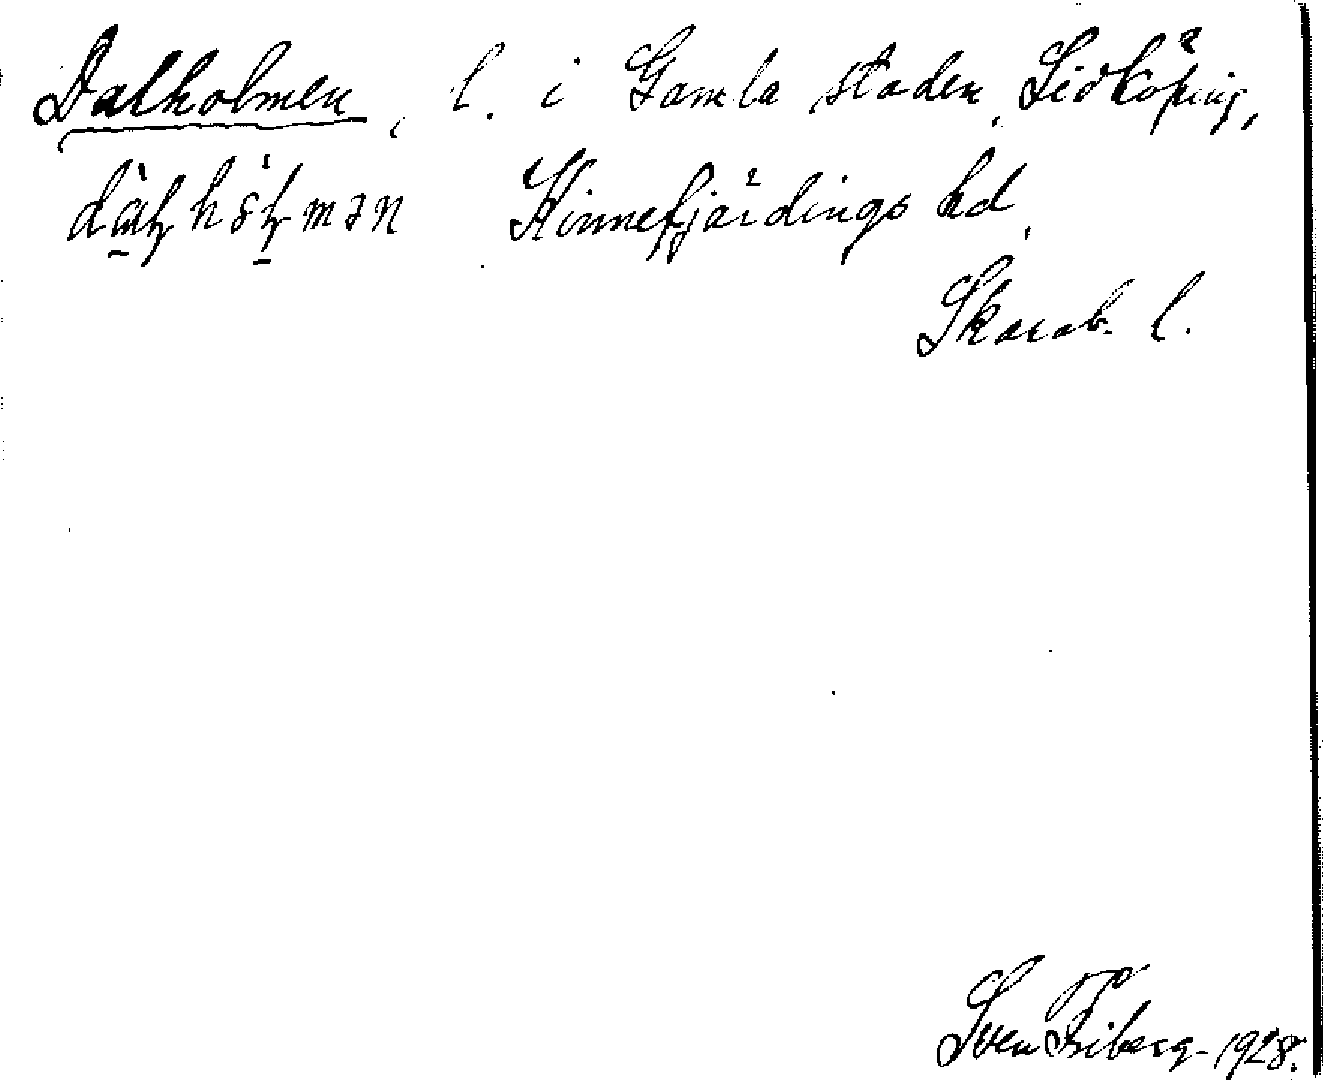 Dalholmen, l. i Gamla staden, Lidköping,
Kinnefjärdings hd,
Skarab. l.
Sven Friberg - 1928.